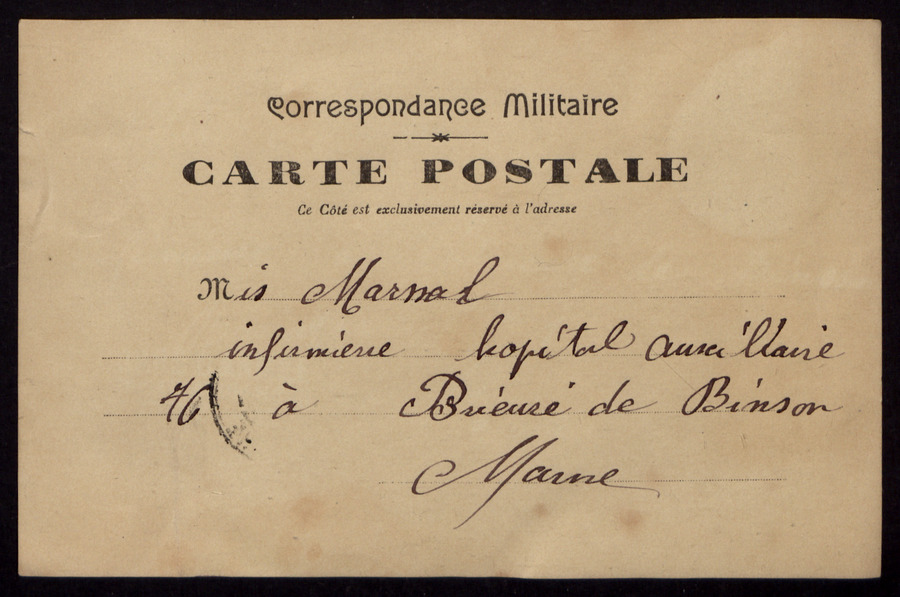 Correspondance Militaire
CARTE POSTALE
Ce Côté est exclusivement réservé à l'adresse
Mis Marsal
infirmiere hopital auxillaire
76 à Prieuré de Binson
Marne